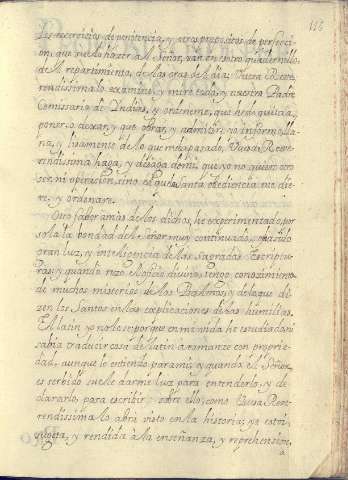 116
Los exercicios de penitencia, y otros propositos de perfeci-
on, que suelo hazer al Señor, van en otro quadernillo
del repartimiento de las oras del dia; Vuesa Reve-
rendissima lo examine, y mire esto, y nuestro Padre
Comissario de Yndias, y ordeneme, que he de quitar,
poner o dexar, y que obrar, y admitir; yo informo lla-
na, y lisamente de lo que me ha pasado, Vuesa Reve-
rendissima haga, y disponga de mi, que yo no quiero otro
ser, ni operacion, sino el que la santa obediencia me die-
re, y ordenare.
Otro favor a mas de los dichos, he experimentado por
sola la bondad del Señor muy continuado, que ha sido
gran luz, y inteligencia de las Sagradas Escriptu-
ras, y quando rezo el oficio divino, tengo conocimiento
de muchos misterios de los Psalmos, y de lo que di-
zen los Santos en las explicaciones de las humilias.
El latin yo no lo se, porque en mi vida he estudiado, ni
sabria traducir cosa de latin a romanze con proprie-
dad, aunque lo entiendo para mi, y quando el Señor
es servido suele darme luz para entenderlo, y de-
clararlo, para escribir sobre ello, como Vuesa Reve-
rendissima lo abra visto en la historia; yo estoi
sugeta, y rendida a la enseñanza, y reprehension,